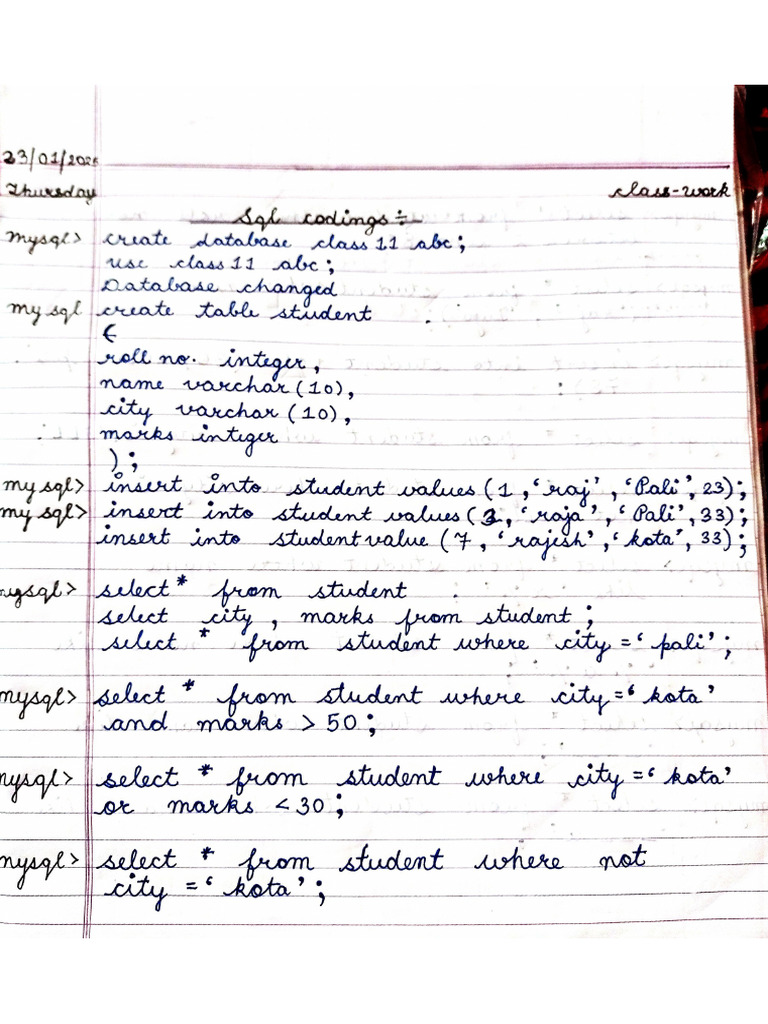 23/01/2025
Thursday class-work
Sql codings :-
mysql> create database class 11 abc;
use class 11 abc;
Database changed
my sql create table student
(
roll no. integer,
name varchar (10),
city varchar (10),
marks integer
);
my sql> insert into student values (1, 'raj', 'Pali', 23);
my sql> insert into student values (2, 'raja', 'Pali', 33);
insert into student value (7, 'rajesh', 'kota', 33);
mysql> select * from student
select city, marks from student;
select * from student where city = 'pali';
mysql> select * from student where city = 'kota'
and marks > 50;
mysql> select * from student where city = 'kota'
or marks < 30;
mysql> select * from student where not
city = 'kota';